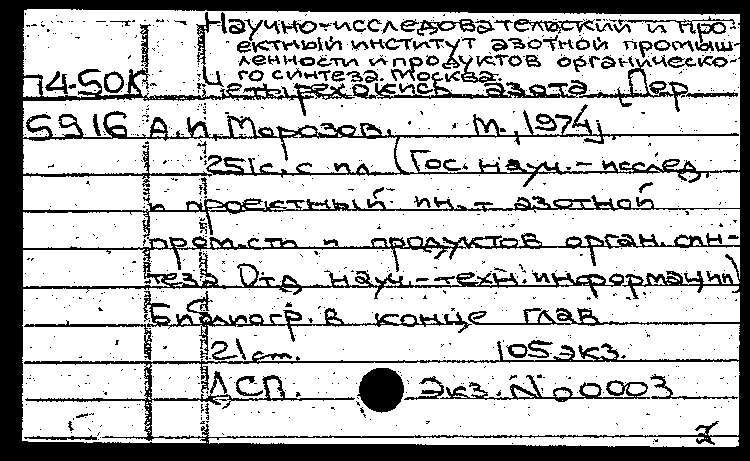 Научно-исследовательский и про-
ектный институт азотной промыш-
ленности и продуктов органическо-
го синтеза. Москва.
74-50К Четырехокись азота. [Пер.
5916 А.И. Морозов. М., 1974].
251 с. с ил. (Гос. науч.-исслед.
и проектный ин-т азотной
пром-сти и продуктов орган. син-
теза Отд. науч.-техн. информации)
Библиогр. в конце глав
21 cm. 105 экз.
ДСП. Экз. № 00003